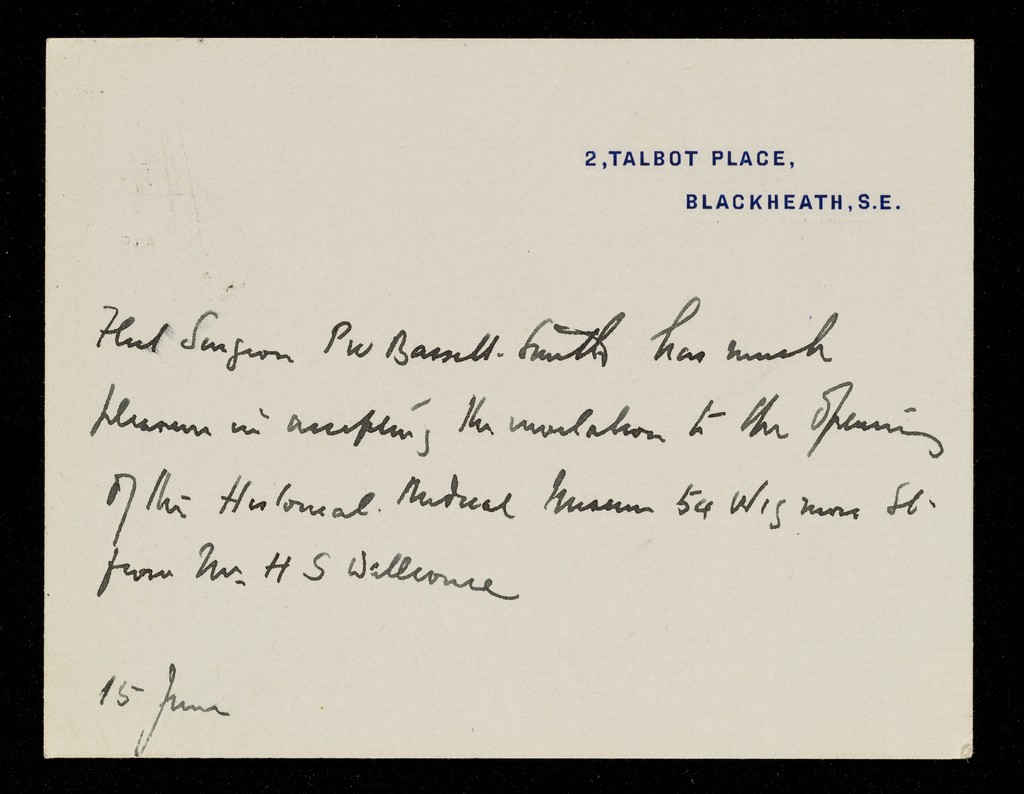 2, TALBOT PLACE,
BLACKHEATH, S.E.
Fleet Surgeon PW Bassett-Smith has much
pleasure in accepting the invitation to the Opening
of the Historical Medical Museum 54 Wigmore St.
from Mr. H S Wellcome
15 June